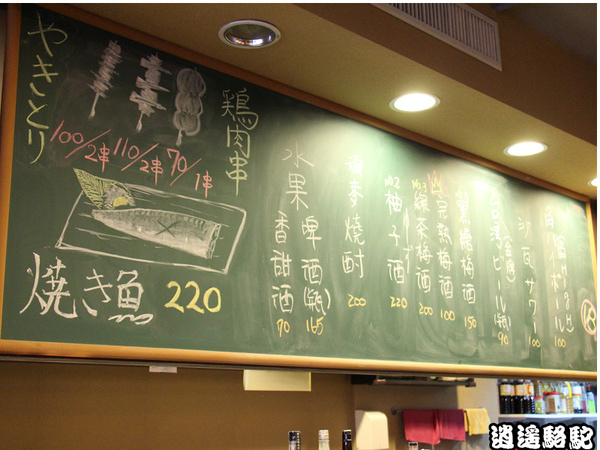 やきとり
100/2串
110/2串
70/1串
鶏肉串
焼き魚 220
水果啤酒(瓶) 165
香甜酒 90
麥燒酎 200
No2 柚子酒 220
No3 綠茶梅酒 200
完熟梅酒 100
黑糖梅酒 150
台湾ビール(瓶) 90
(金牌)
沙瓦サワー 100
ハイボール 100
逍遥駱駝